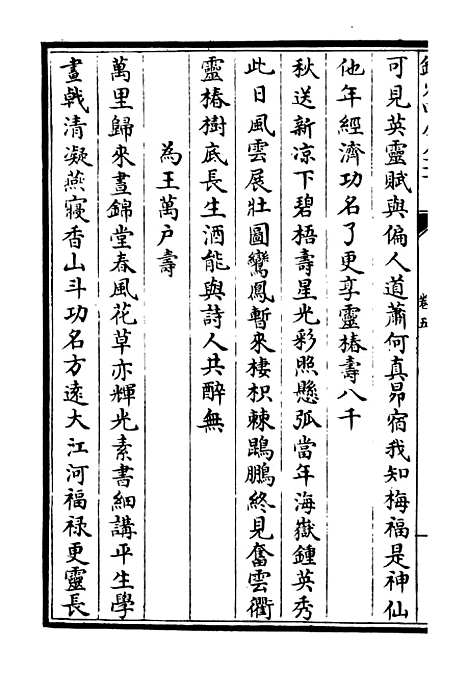 卷五
可見英靈賦與偏人道蕭何真昴宿我知梅福是神仙
他年經濟功名了更享靈椿壽八千
秋送新凉下碧梧壽星光彩照懸弧當年海嶽鍾英秀
此日風雲展壯圖鸞鳳暫來棲枳棘鵾鵬終見奮雲衢
靈椿樹底長生酒能與詩人共醉無
為王萬户壽
萬里歸來晝錦堂春風花草亦輝光素書細講平生學
畫戟清凝燕寢香山斗功名方遠大江河福禄更靈長